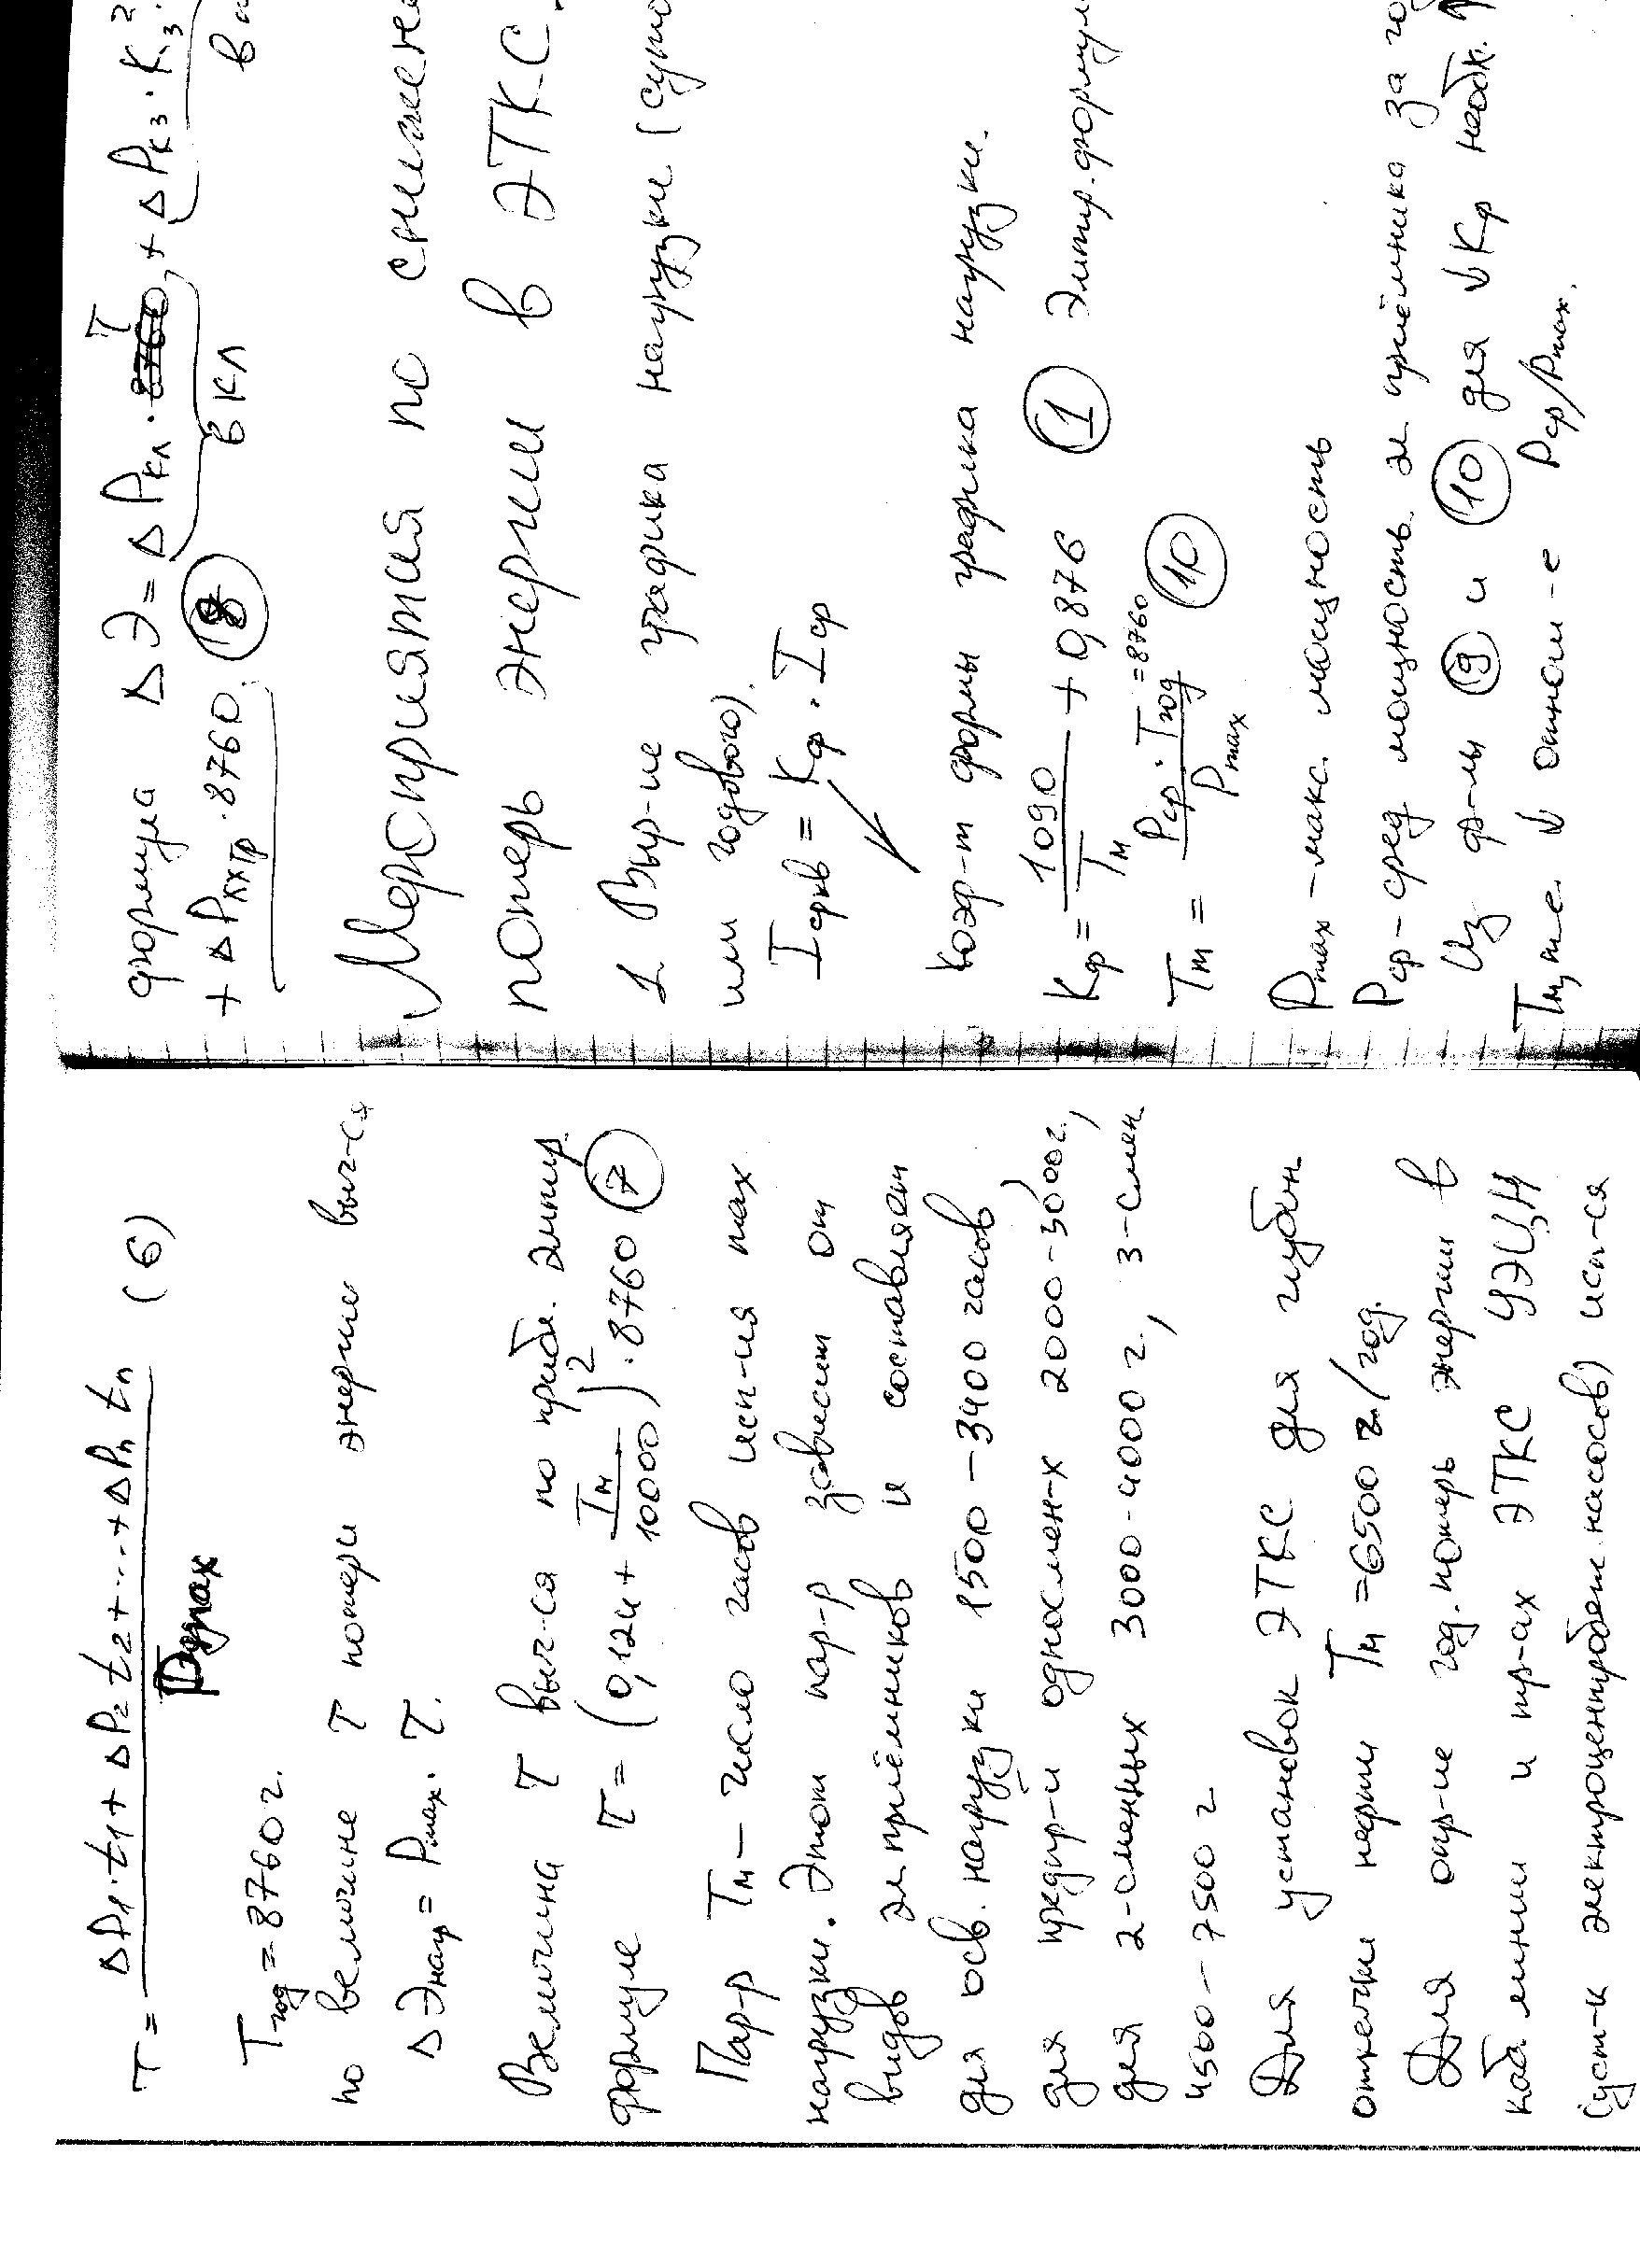 τ = ΔP₁·t₁ + ΔP₂t₂ + ... + ΔPₙtₙ / Pmax (6)
Tгод = 8760 г.
по величине τ потери энергии выч-ся
ΔЭнагр = Pmax · τ.
Величина τ выч-ся по прибл. эмпир.
формуле τ = (0,124 + Tм/10000)² · 8760 (7)
Пар-р Tм – число часов исп-ия max
нагрузки. Этот пар-р зависит от
видов эл приёмников и составляет
для осв. нагрузки 1500 – 3400 часов,
для предпр-й односмен-х 2000-3000г,
для 2-сменных 3000-4000 г, 3-смен
4500 – 7500 г
Для установок ЭТКС для глубин
откачки нефти Tм = 6500 г/год.
Для опр-ие год. потерь энергии в
каб линии и тр-ах ЭТКС УЭЦН
(уст-к электроцентробеж. насосов) исп-ся
формула ΔЭ = ΔPкл · 8760 τ + ΔPкз · Kз² ·
в кл
+ ΔPххтр · 8760. (8)
Мероприятия по снижен
потерь энергии в ЭТКС.
1 Выр-ие графика нагрузки (суто
или годового).
Iсркв = Kф · Iср
Коэф-т формы графика нагрузки.
Kф = 1090/Tм + 0,876 (1) Эмпир. формул
Tм = Pср · Tгод =8760 / Pmax (10)
Pmax – макс. мощность
Pср – сред мощность эл приёмника за го
Из ф-лы (9) и (10) для ↓Kф необх. ↑
Tм, т.е. ↓ отнош-е Pср/Pmax.